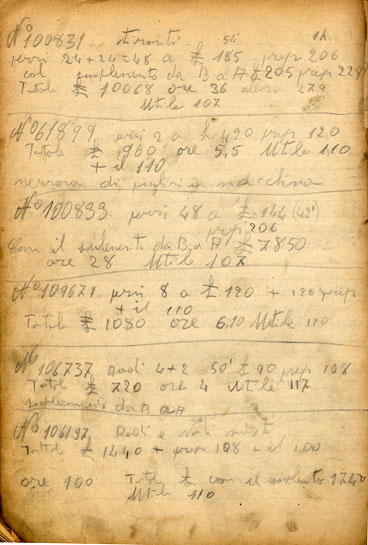 No 100831 54' 1h
pezzi 24+24=48 a £ 185 prep 206
col suplemento da B a A £ 205 prep 228
Totale £ 10068 ore 36 279
Utile 107
No 61899 pezzi 2 a £ 420 prep 120
Totale £ 960 ore 5,5 Utile 110
+ il 110
di macchina
No 100833 pezzi 48 a £ 144 (42')
prep 206
Con il suplemento da B a A £ 7850
ore 28 Utile 107
No 109671 pezzi 8 a £ 120 + 120 prep
+ il 110
Totale £ 1080 ore 6,10 Utile 110
No 106737 Dadi 4+2 50' £ 90 prep 108
Totale £ 720 ore 4 Utile 117
suplemento da B a A
No 106197 Dadi e
Totale £ 1440 + 108 + il 100
ore 100 Totale £ con il 1740
Utile 110